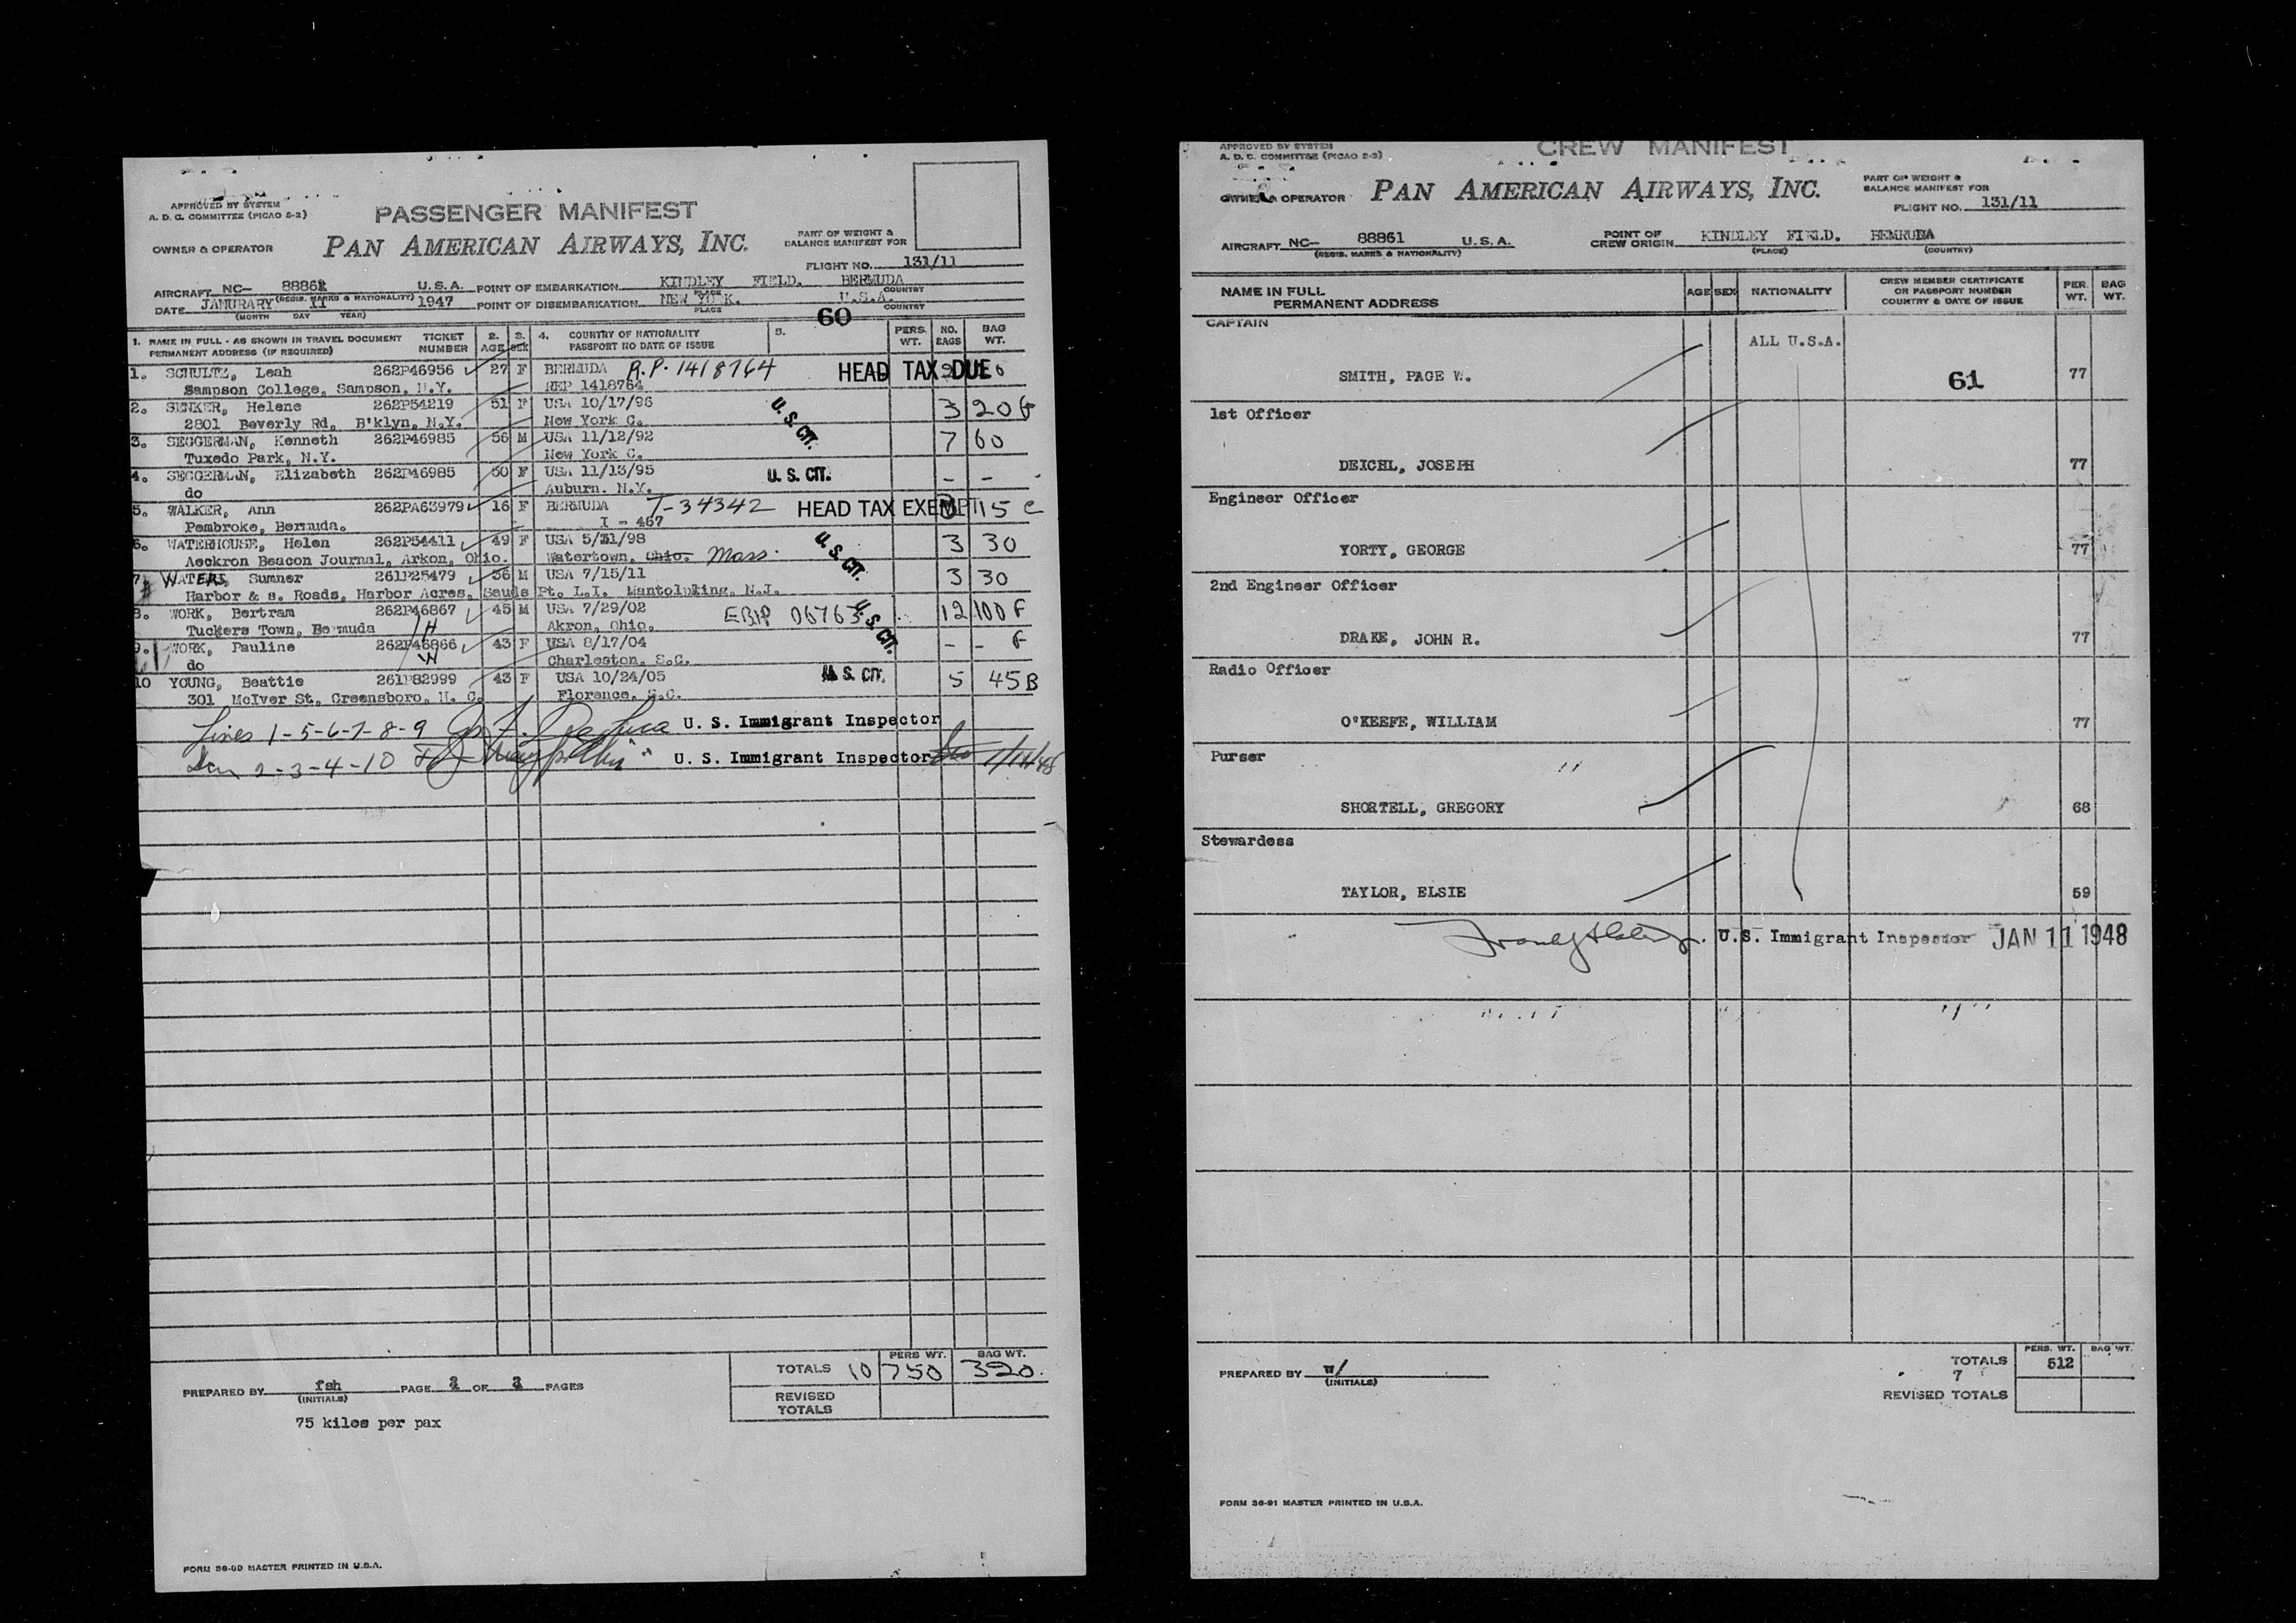 APPROVED BY SYSTEM
A. D. C. COMMITTEE (PICAO 2-2)
PASSENGER MANIFEST
OWNER & OPERATOR PAN AMERICAN AIRWAYS, INC.
PART OF WEIGHT &
BALANCE MANIFEST FOR
FLIGHT NO. 131/11
AIRCRAFT NC- 8886 U.S.A. POINT OF EMBARKATION KINDLEY FIELD. BERMUDA
(REGIS. MARKS & NATIONALITY) PLACE COUNTRY
DATE JAMURARY 11 1947 POINT OF DISEMBARKATION NEW YORK. U.S.A.
(MONTH DAY YEAR) PLACE COUNTRY
60
1. NAME IN FULL - AS SHOWN IN TRAVEL DOCUMENT TICKET 2. 3. 4. COUNTRY OF NATIONALITY 5. PERS. NO. BAG
PERMANENT ADDRESS (IF REQUIRED) NUMBER AGE SEX PASSPORT NO DATE OF ISSUE WT. BAGS WT.
1. SCHULTZ, Leah 262P46956 27 F BERMUDA R.P. 1418764 HEAD TAX DUE
Sampson College, Sampson, N.Y. REP 1418764
2. SENKER, Helene 262P54219 51 F USA 10/17/96 U. S. CIT. 3 20
2801 Beverly Rd, B'klyn, N.Y. New York C.
3. SEGGERMAN, Kenneth 262P46985 56 M USA 11/12/92 7 60
Tuxedo Park, N.Y. New York C.
4. SEGGERMAN, Elizabeth 262P46985 50 F USA 11/13/95 U. S. CIT. - -
do Auburn. N.Y.
5. WALKER, Ann 262PA63979 16 F BERMUDA T-34342 HEAD TAX EXEMPT 15 C
Pembroke, Bermuda. I - 467
6. WATERHOUSE, Helen 262P54411 49 F USA 5/31/98 U. S. CIT. 3 30
Aeckron Beacon Journal, Arkon, Ohio. Watertown, Ohio. Mass.
7. WATERS, Sumner 261P25479 36 M USA 7/15/11 3 30
Harbor & s. Roads, Harbor Acres, Sauds Pt. L.I. Mantolpking, N.J.
8. WORK, Bertram 262P46867 45 M USA 7/29/02 U. S. CIT. 12 100 F
Tuckers Town, Bermuda Akron, Ohio.
9. WORK, Pauline 262P46866 43 F USA 8/17/04 - - F
do Charleston, S.C.
10 YOUNG, Beattie 261P82999 43 F USA 10/24/05 U. S. CIT. 5 45 B
301 McIver St, Greensboro, N. C. Florence, S.C.
Lines 1-5-6-7-8-9 U. S. Immigrant Inspector
2-3-4-10 U. S. Immigrant Inspector 1/11/48
PERS WT. BAG WT.
TOTALS 10 750 320.
PREPARED BY fsh PAGE OF PAGES
(INITIALS)
REVISED
TOTALS
75 kilos per pax
FORM 36-90 MASTER PRINTED IN U.S.A.
APPROVED BY SYSTEM
A. D. C. COMMITTEE (PICAO 2-3)
CREW MANIFEST
OWNER & OPERATOR PAN AMERICAN AIRWAYS, INC.
PART OF WEIGHT &
BALANCE MANIFEST FOR
FLIGHT NO. 131/11
AIRCRAFT NC- 88861 U.S.A. POINT OF CREW ORIGIN KINDLEY FIELD. BEMRUDA
(REGIS. MARKS & NATIONALITY) (PLACE) (COUNTRY)
NAME IN FULL
PERMANENT ADDRESS
AGE SEX NATIONALITY
CREW MEMBER CERTIFICATE
OR PASSPORT NUMBER
COUNTRY & DATE OF ISSUE
PER. WT.
BAG WT.
CAPTAIN
ALL U.S.A.
SMITH, PAGE W. 61 77
1st Officer
DEICHL, JOSEPH 77
Engineer Officer
YORTY, GEORGE 77
2nd Engineer Officer
DRAKE, JOHN R. 77
Radio Officer
O'KEEFE, WILLIAM 77
Purser
SHORTELL, GREGORY 68
Stewardess
TAYLOR, ELSIE 59
U.S. Immigrant Inspector JAN 11 1948
PERS. WT. BAG WT.
TOTALS 512
7
PREPARED BY w/
(INITIALS)
REVISED TOTALS
FORM 36-91 MASTER PRINTED IN U.S.A.